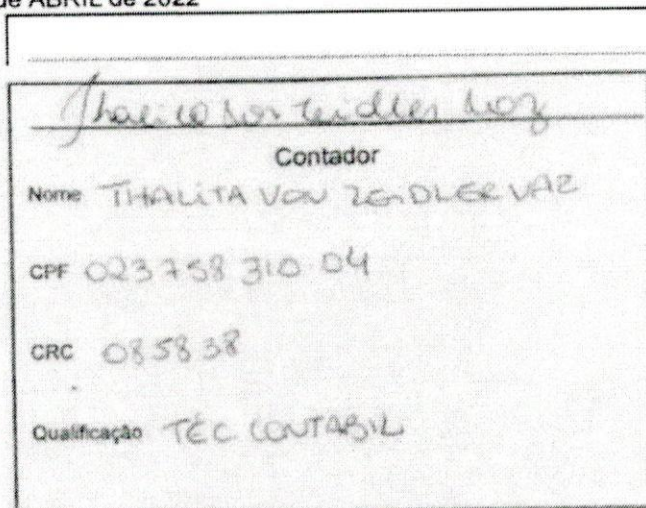 de ABRIL de 2022
Thalita Von Zeidler Vaz
Contador
Nome THALITA VON ZEIDLER VAZ
CPF 023 758 310 04
CRC 085838
Qualificação TÉC CONTABIL